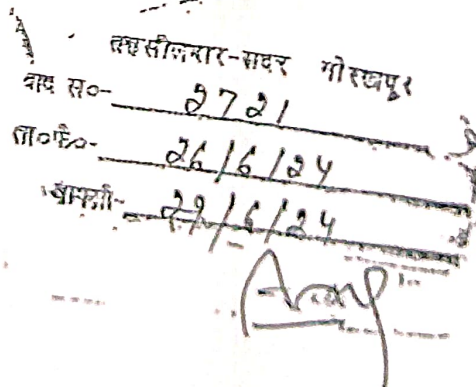 तहसीलदार-सदर गोरखपुर
वाद स०- 2721
ता०फै०- 26/6/24
वापसी- 29/6/24